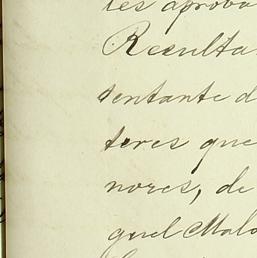 tes aproba
Resulta
sentante d
teres que
nores, de
guel Malo